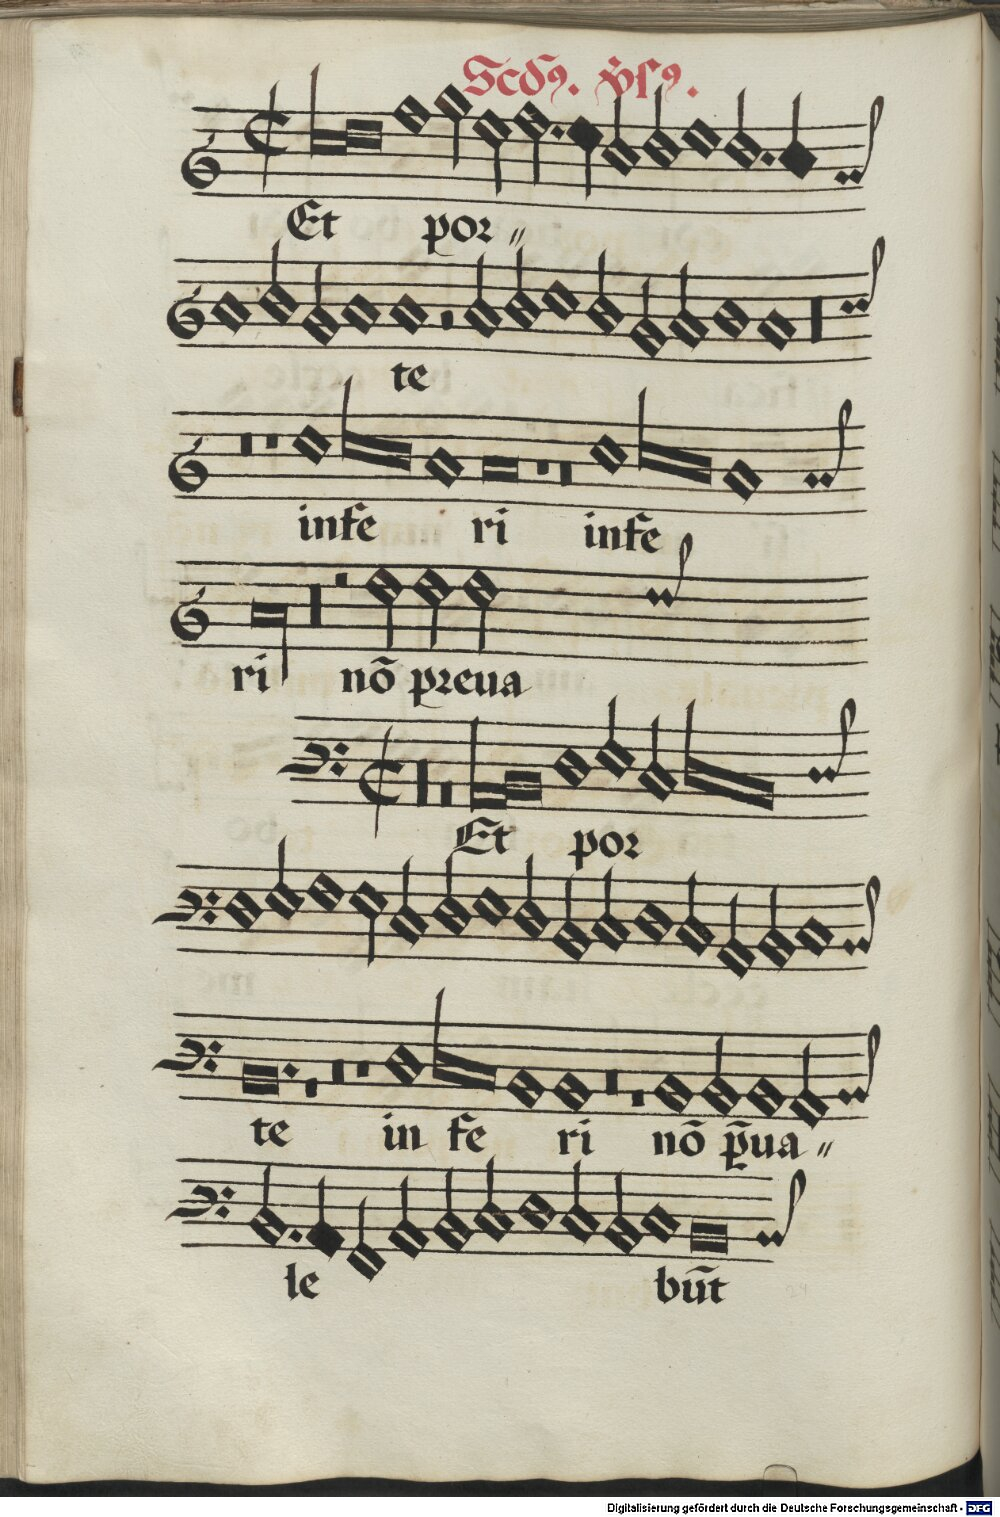 Scd᷒ꝰ. v̉ſꝰ.
Et por〃
te
infe ri infe
ri nō preua
Et por
te in fe ri nō p̄ua〃
le būt
Digitalisierung gefördert durch die Deutsche Forschungsgemeinschaft - DFG